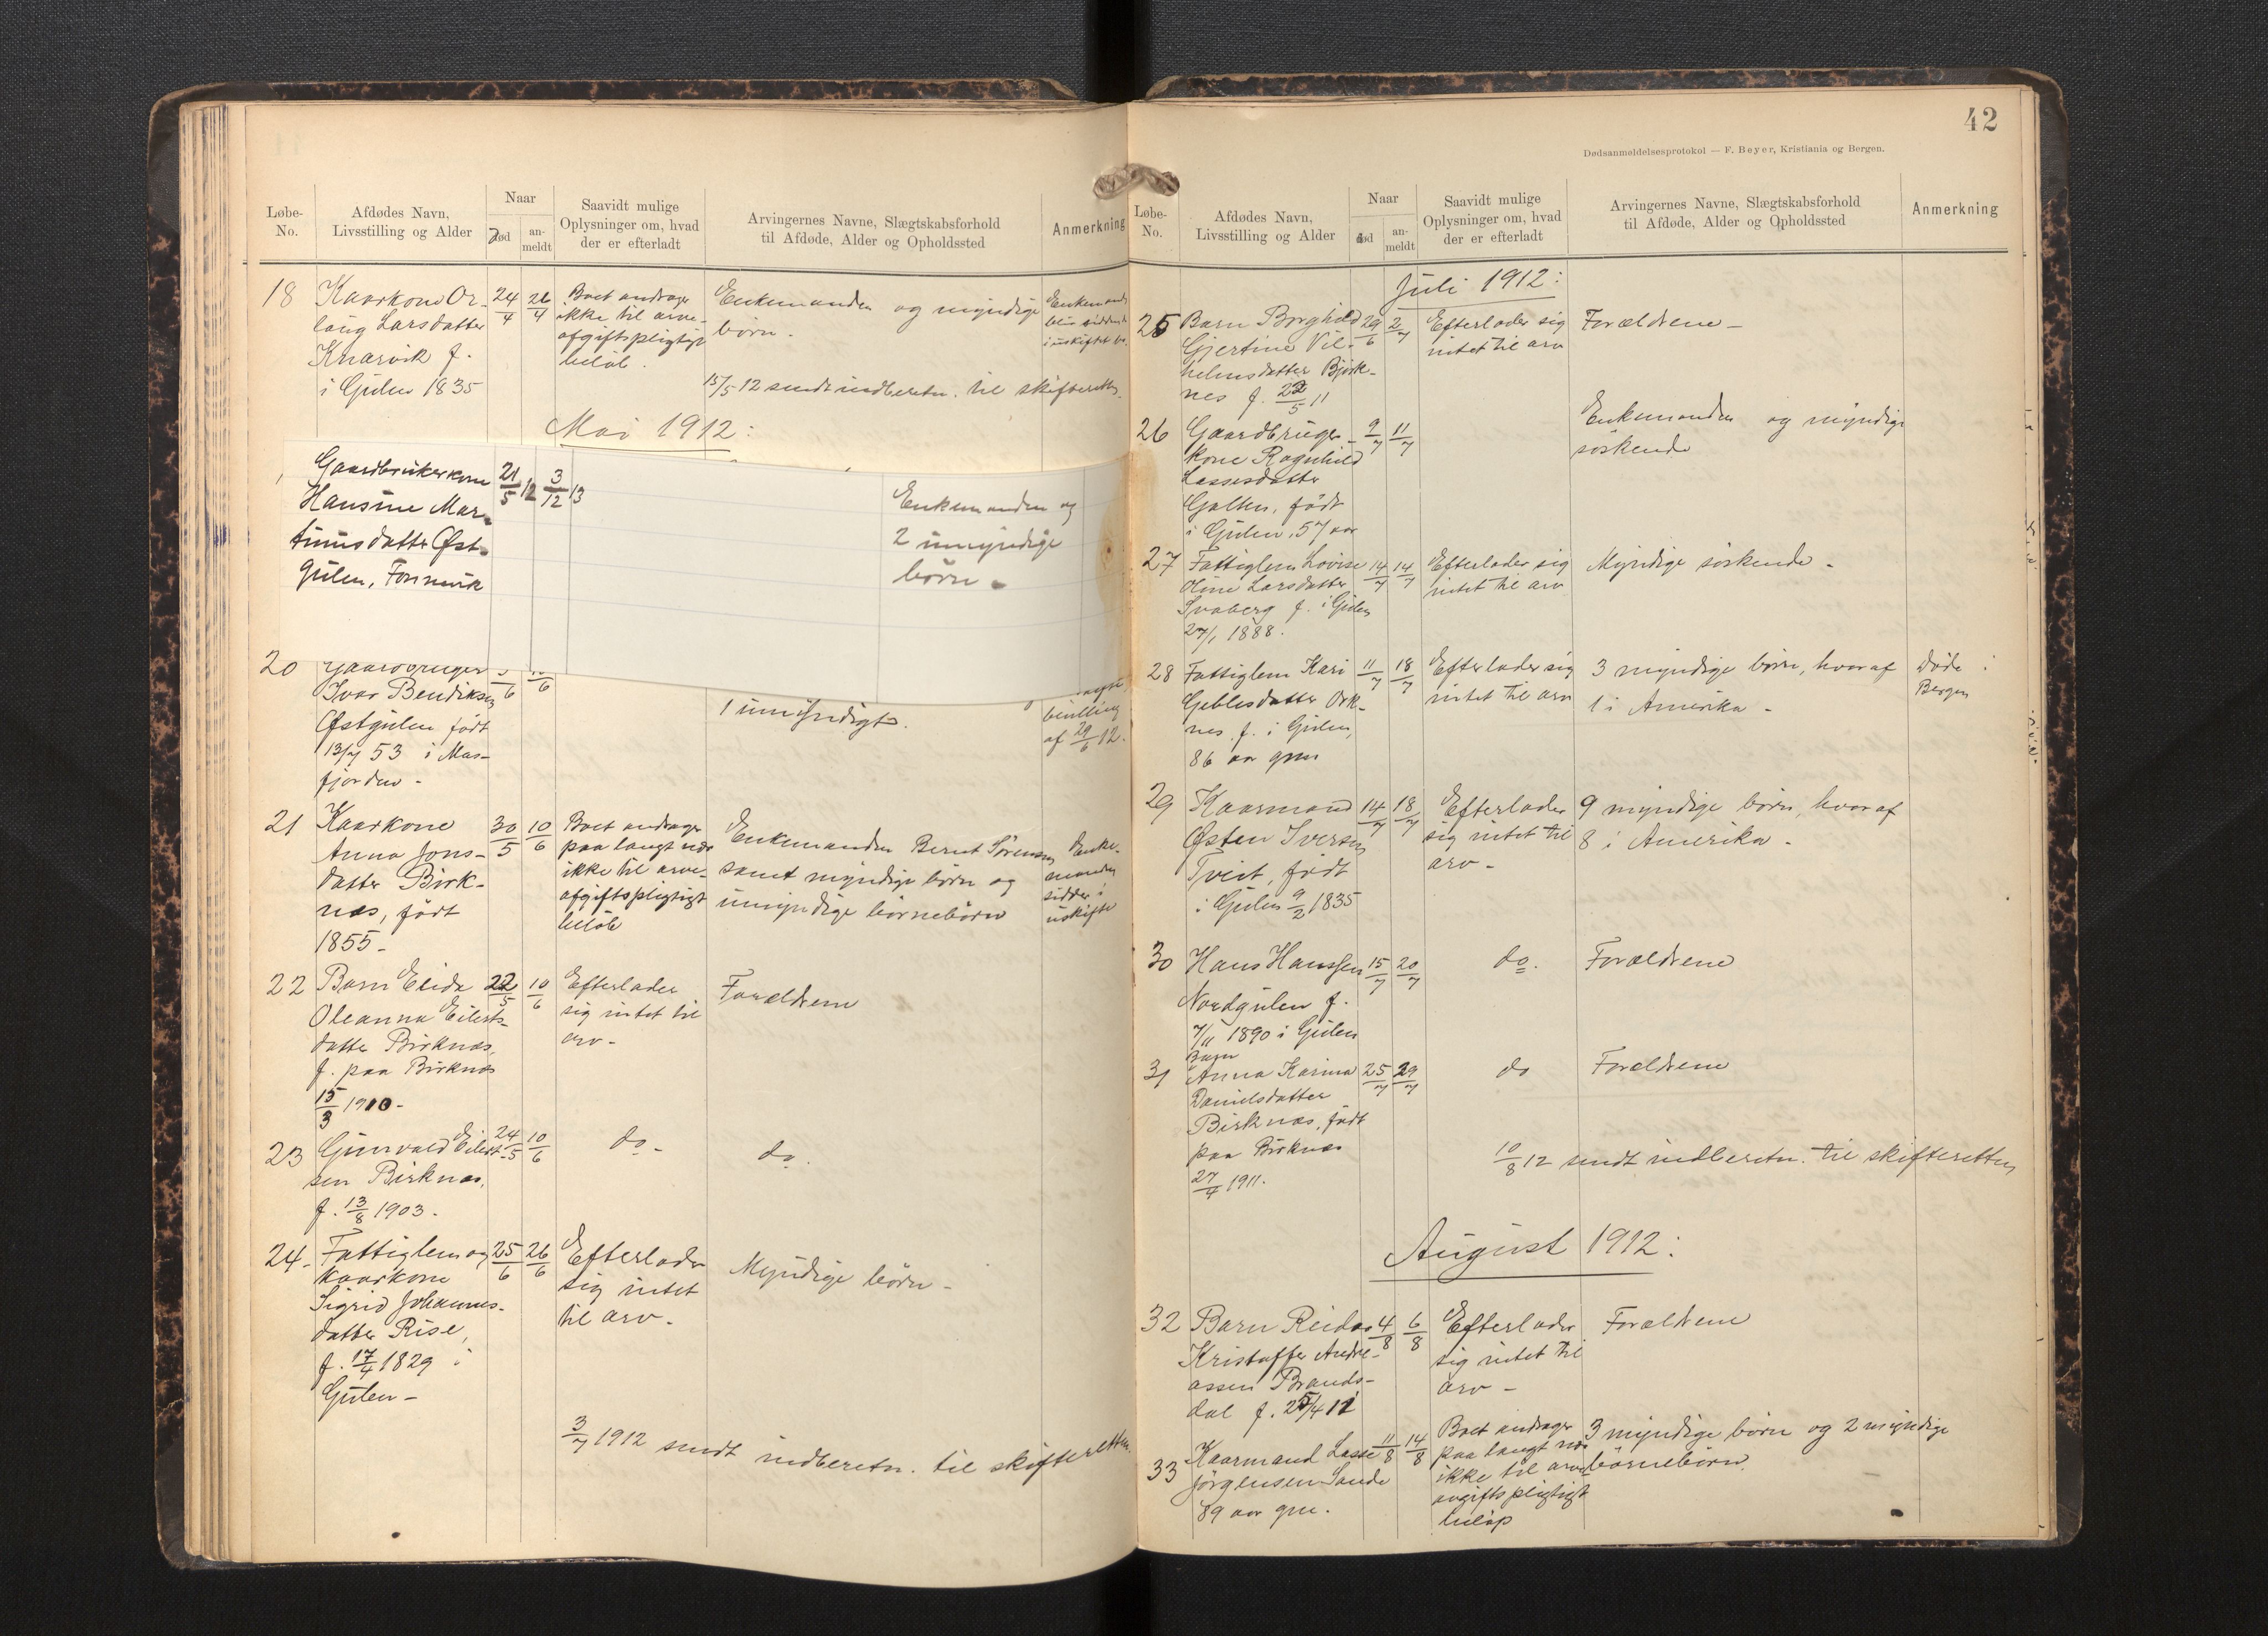 Løbe-No.
Afdødes Navn, Livsstilling og Alder
Naar
død
an-meldt
Saavidt mulige Oplysninger om, hvad der er efterladt
Arvingernes Navne, Slægtskabsforhold til Afdøde, Alder og Opholdssted
Anmerkning
18 Kaarkone Or-
laug Larsdatter
Knarvik f.
i Gulen 1835
24/4
26/4
Boet andrager
ikke til arve-
afgiftspligtigt
beløb.
Enkemanden og myndige
børn.
15/5 12 sendt indberetn. til skifteretten
Mai 1912:
Gaardbrukerkone
Hansine Mar-
tinusdatter Øst-
gulen, Fonnevik
21/5 12
3/12 13
Enkemanden og
2 umyndige
børn.
20 Gaardbruger
Ivar Bendiksen
Østgulen født
13/7 53 i Mas-
fjorden -
1 umyndigt.
af 29/6 12.
21 Kaarkone
Anna Jons-
datter Birk-
næs, født
1855 -
30/5
10/6
Boet andrager
paa langt nær
ikke til arve-
afgiftspligtigt
beløb
Enkemanden Bernt Sørensen
samt myndige børn og
umyndige børnebørn
Enke-
manden
sidder i
uskifte
22 Barn Elida
Oleanna Eilerts-
datter Birknæs,
f. paa Birknæs
15/3 1910 -
22/5
10/6
Efterlader
sig intet til
arv -
Forældrene
23 Gunvald Eilert-
sen Birknæs.
f. 13/8 1903 -
24/5
10/6
do -
do.
24 - Fattiglem og
kaarkone
Sigrid Johannes-
datter Rise,
f. 17/4 1829 i
Gulen -
25/6
26/6
Efterlader
sig intet
til arv -
Myndige børn -
3/7 1912 sendt indberetn. til skifteretten.
42
Dødsanmeldelsesprotokol — F. Beyer, Kristiania og Bergen.
Løbe-No.
Afdødes Navn, Livsstilling og Alder
Naar
død
an-meldt
Saavidt mulige Oplysninger om, hvad der er efterladt
Arvingernes Navne, Slægtskabsforhold til Afdøde, Alder og Opholdssted
Anmerkning
Juli 1912:
25 Barn Borghild
Gjertine Vil-
helmsdatter Bjørk-
nes f. 22/5 11
29/6
2/7
Efterlader sig
intet til arv
Forældrene -
26 Gaardbruger-
kone Ragnhild
Lassesdatter
Galten, født
i Gulen, 57 aar
9/7
11/7
Enkemanden og myndige
søskende
27 Fattiglem Lovise
Oline Larsdatter
Svaberg f. i Gulen
27/1 1888.
14/7
14/7
Efterlader sig
intet til arv
Myndige søskende -
28 Fattiglem Kari
Geblesdatter Ork-
nes f. i Gulen,
86 aar gml
11/7
18/7
Efterlader sig
intet til arv
3 myndige børn, hvoraf
1 i Amerika -
Døde i
Bergen
29 Kaarmand
Østen Iversen
Tveit, født
i Gulen 9/2 1835
14/7
18/7
Efterlader
sig intet til
arv -
9 myndige børn, hvoraf
8 i Amerika -
30 Hans Hanssen
Nordgulen f.
7/11 1890 i Gulen
15/7
20/7
do.
Forældrene
31 Barn
Anna Karina
Danielsdatter
Birknæs, født
paa Birknæs
27/4 1911.
25/7
29/7
do
Forældrene
10/8 12 sendt indberetn. til skifteretten
August 1912:
32 Barn Reidar
Kristoffer Andre-
assen Brands-
dal f. 25/4 12
4/8
6/8
Efterlader
sig intet til
arv -
Forældrene
33 Kaarmand Lasse
Jørgensen Sande
89 aar gml.
11/8
14/8
Boet andrager
paa langt nær
ikke til arve-
avgiftspligtigt
beløp
3 myndige børn og 2 myndige
børnebørn.